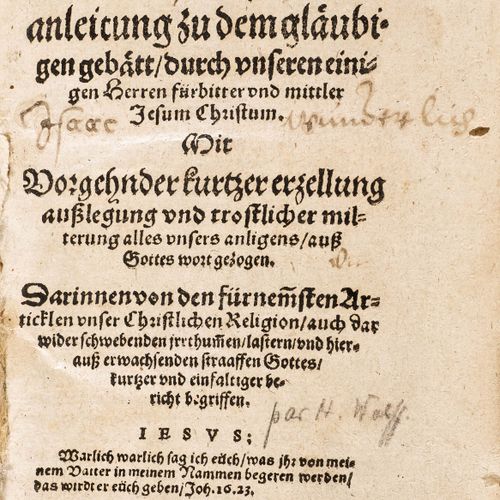 anleitung zu dem gläubi-
gen gebätt/durch vnseren eini-
gen Herren fürbitter vnd mittler
Jesum Christum.
Isaac wunderlich
Mit
Vorgehnder kurtzer erzellung
außlegung vnd trostlicher mil-
terung alles vnsers anligens/auß
Gottes wort gezogen.
Darinnen von den fürnem̃sten Ar-
ticklen vnser Christlichen Religion/auch dar
wider schwebenden jrrthummen/lastern/vnd hier-
auß erwachsenden straaffen Gottes/
kurtzer vnd einfaltiger be-
richt begriffen.
par H. Wolff.
IESVS;
Warlich warlich sag ich eüch/was jhr von mei-
nem Vatter in meinem Nammen begeren werden/
das wirdt er eüch geben/Joh.16.23.